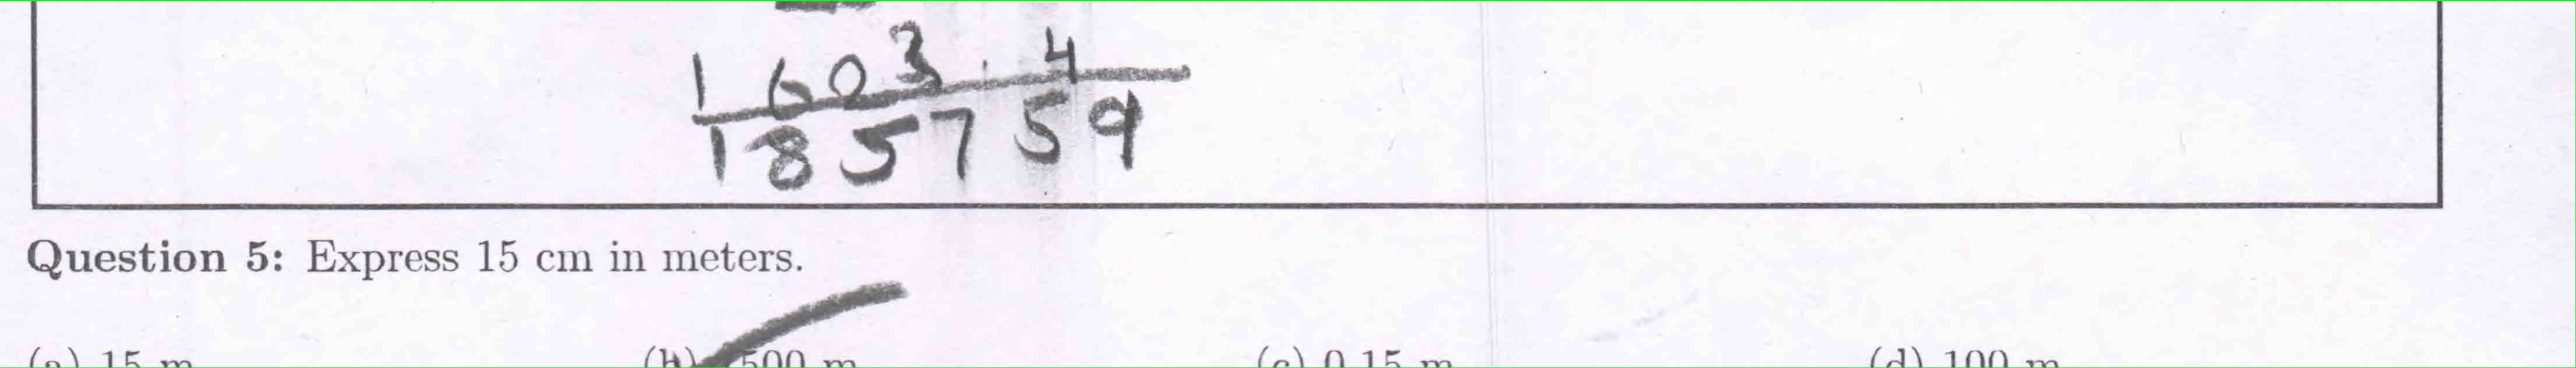 1 6 0 3 . 4
1 8 5 7 5 9
Question 5: Express 15 cm in meters.
(a) 15 m (b) 500 m (c) 0.15 m (d) 100 m